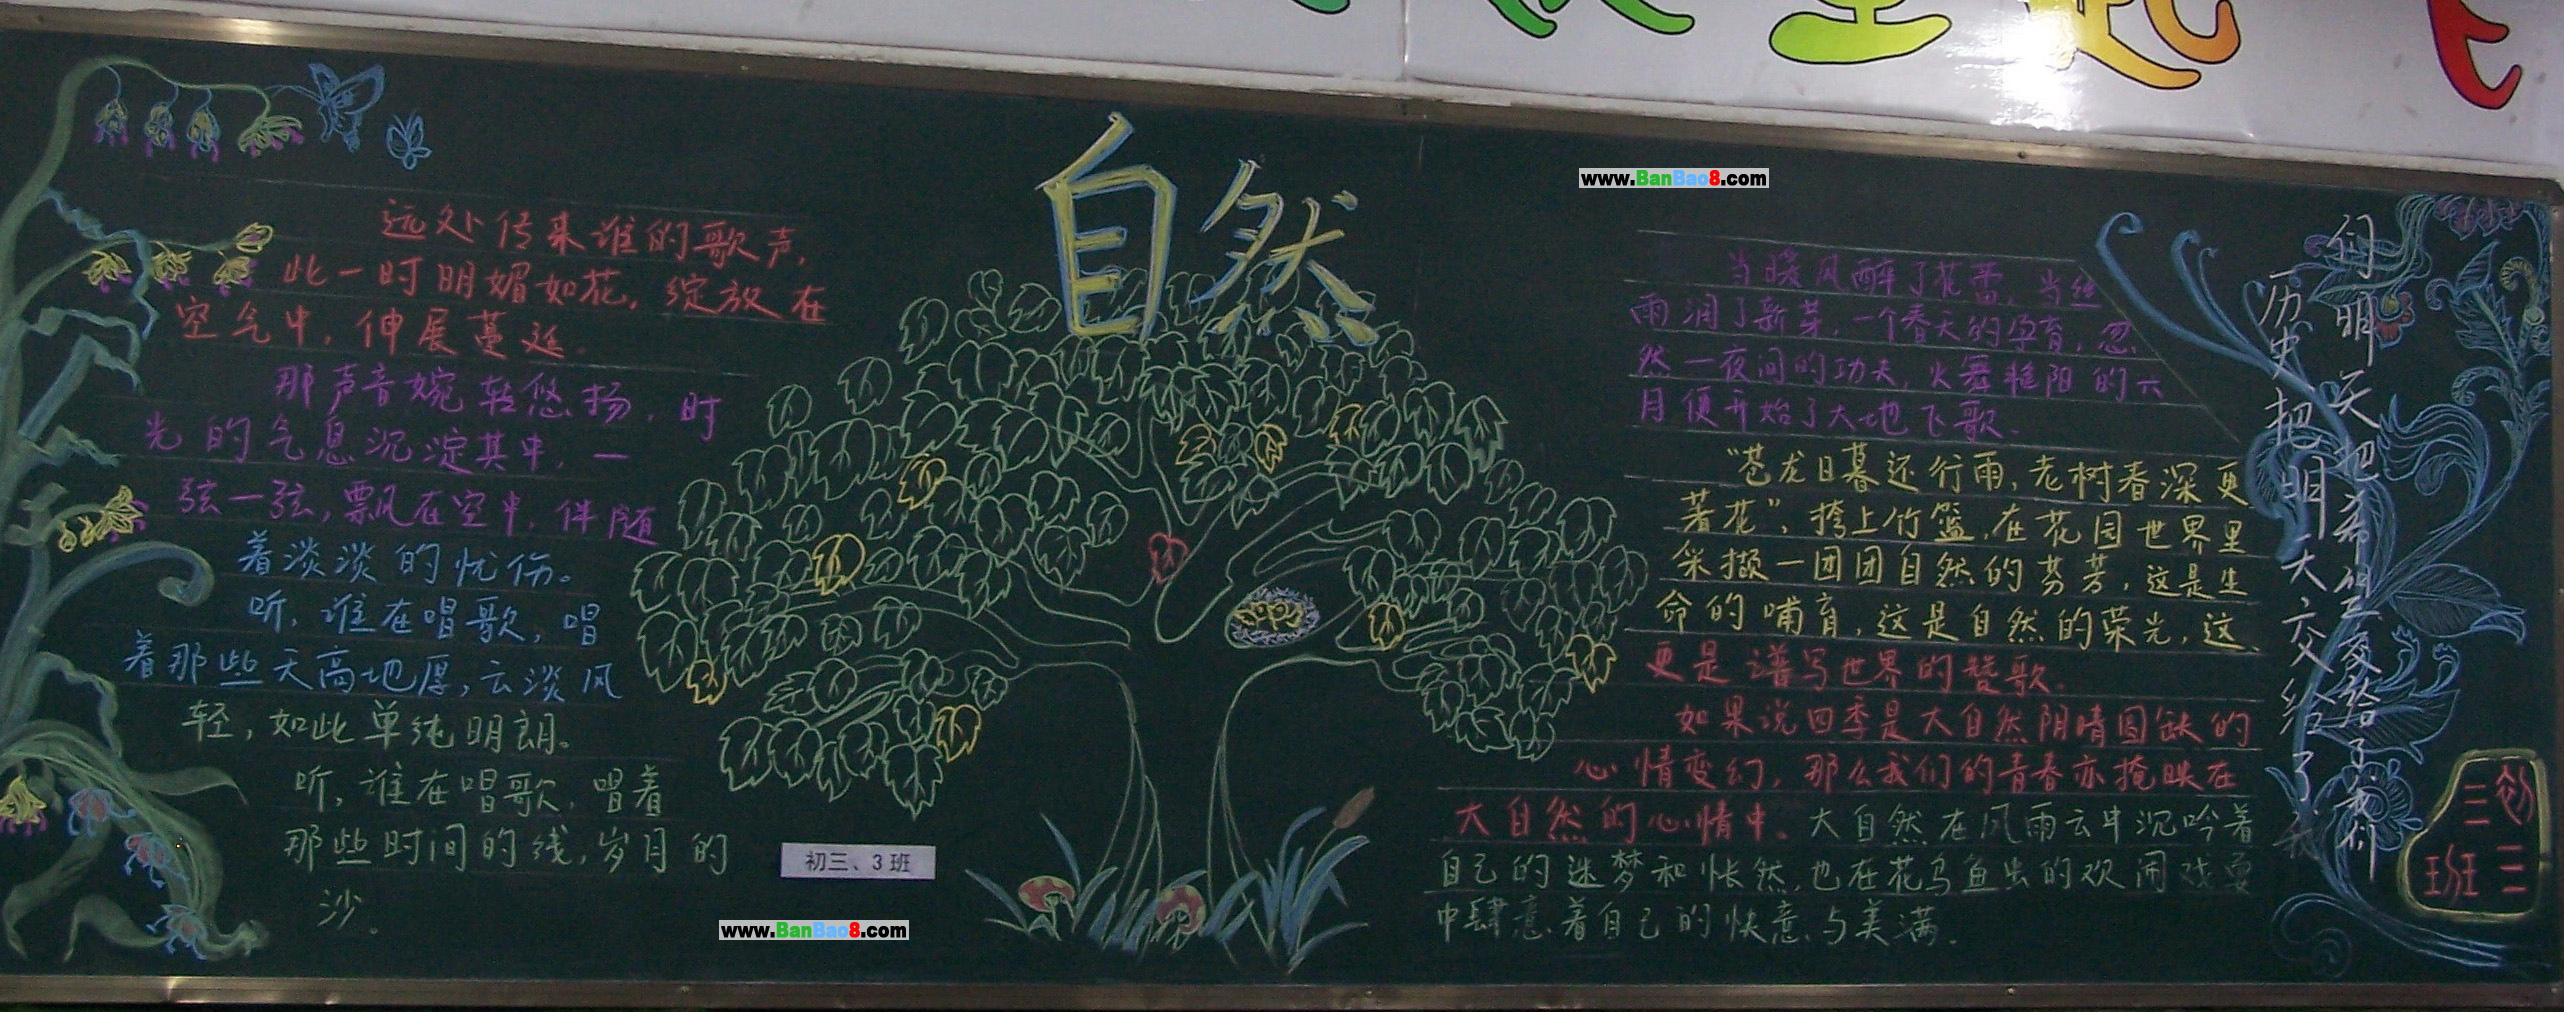 自然
www.BanBao8.com
远处传来谁的歌声，
此一时明媚如花，绽放在
空气中，伸展蔓延.
那声音婉转悠扬，时
光的气息沉淀其中，一
弦一弦，飘风在空中，伴随
着淡淡的忧伤。
听，谁在唱歌，唱
着那些天高地厚，云淡风
轻，如此单纯明朗。
听，谁在唱歌，唱着
那些时间的线，岁月的
沙.
初三、3班
www.BanBao8.com
当暖风醉了花蕾，当丝
雨润了新芽，一个春天的孕育，忽
然一夜间的功夫，火舞艳阳的六
月便开始了大地飞歌.
“苍龙日暮还行雨，老树春深更
著花”，挎上竹篮，在花园世界里
采撷一团团自然的芬芳，这是生
命的哺育，这是自然的荣光，这
更是谱写世界的赞歌.
如果说四季是大自然阴晴圆缺的
心情变幻，那么我们的青春亦掩映在
大自然的心情中。大自然在风雨云中沉吟着
自己的迷梦和怅然，也在花鸟鱼虫的欢闹戏耍
中肆意着自己的快意与美满.
历史把明天交给了我
们明天把希望交给了我们
初三
三班